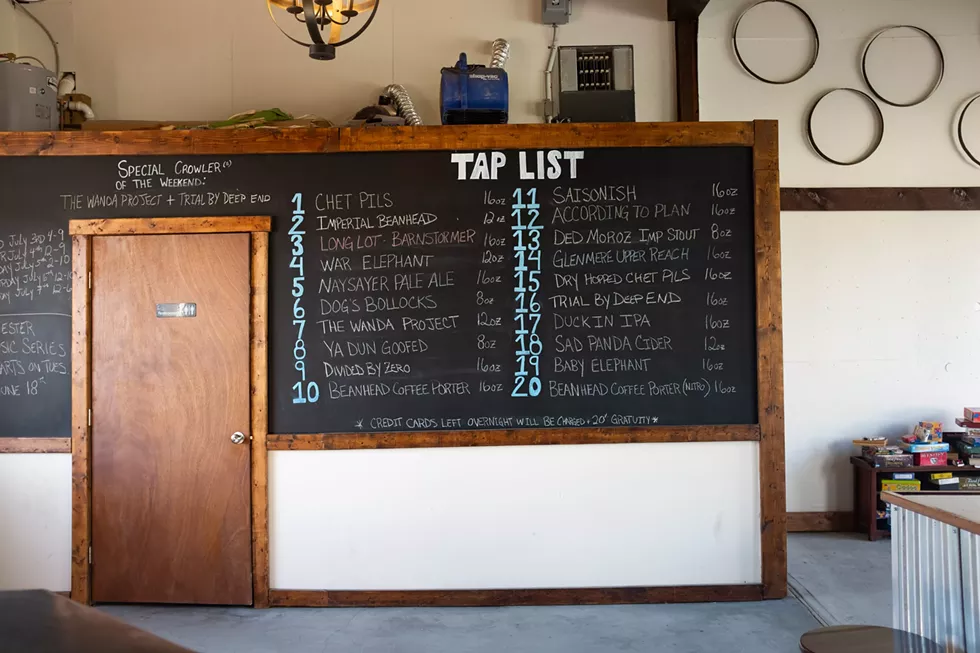 SPECIAL CROWLER(S)
OF THE WEEKEND:
THE WANDA PROJECT + TRIAL BY DEEP END
JULY 3RD 4-9
JULY 4TH 12-6
JULY 5TH 2-10
JULY 6TH 12-10
JULY 7TH 12-6
ESTER
SIC SERIES
ARTS ON TUES.
UNE 18TH
TAP LIST
1 CHET PILS 16oz
2 IMPERIAL BEANHEAD 12oz
3 LONG LOT BARNSTORMER 16oz
4 WAR ELEPHANT 12oz
5 NAYSAYER PALE ALE 16oz
6 DOG'S BOLLOCKS 8oz
7 THE WANDA PROJECT 12oz
8 YA DUN GOOFED 8oz
9 DIVIDED BY ZERO 16oz
10 BEANHEAD COFFEE PORTER 16oz
11 SAISONISH 16oz
12 ACCORDING TO PLAN 16oz
13 DED MOROZ IMP STOUT 8oz
14 GLENMERE UPPER REACH 16oz
15 DRY HOPPED CHET PILS 16oz
16 TRIAL BY DEEP END 16oz
17 DUCK IN IPA 16oz
18 SAD PANDA CIDER 12oz
19 BABY ELEPHANT 16oz
20 BEANHEAD COFFEE PORTER (NITRO) 16oz
* CREDIT CARDS LEFT OVERNIGHT WILL BE CHARGED + 20% GRATUITY *